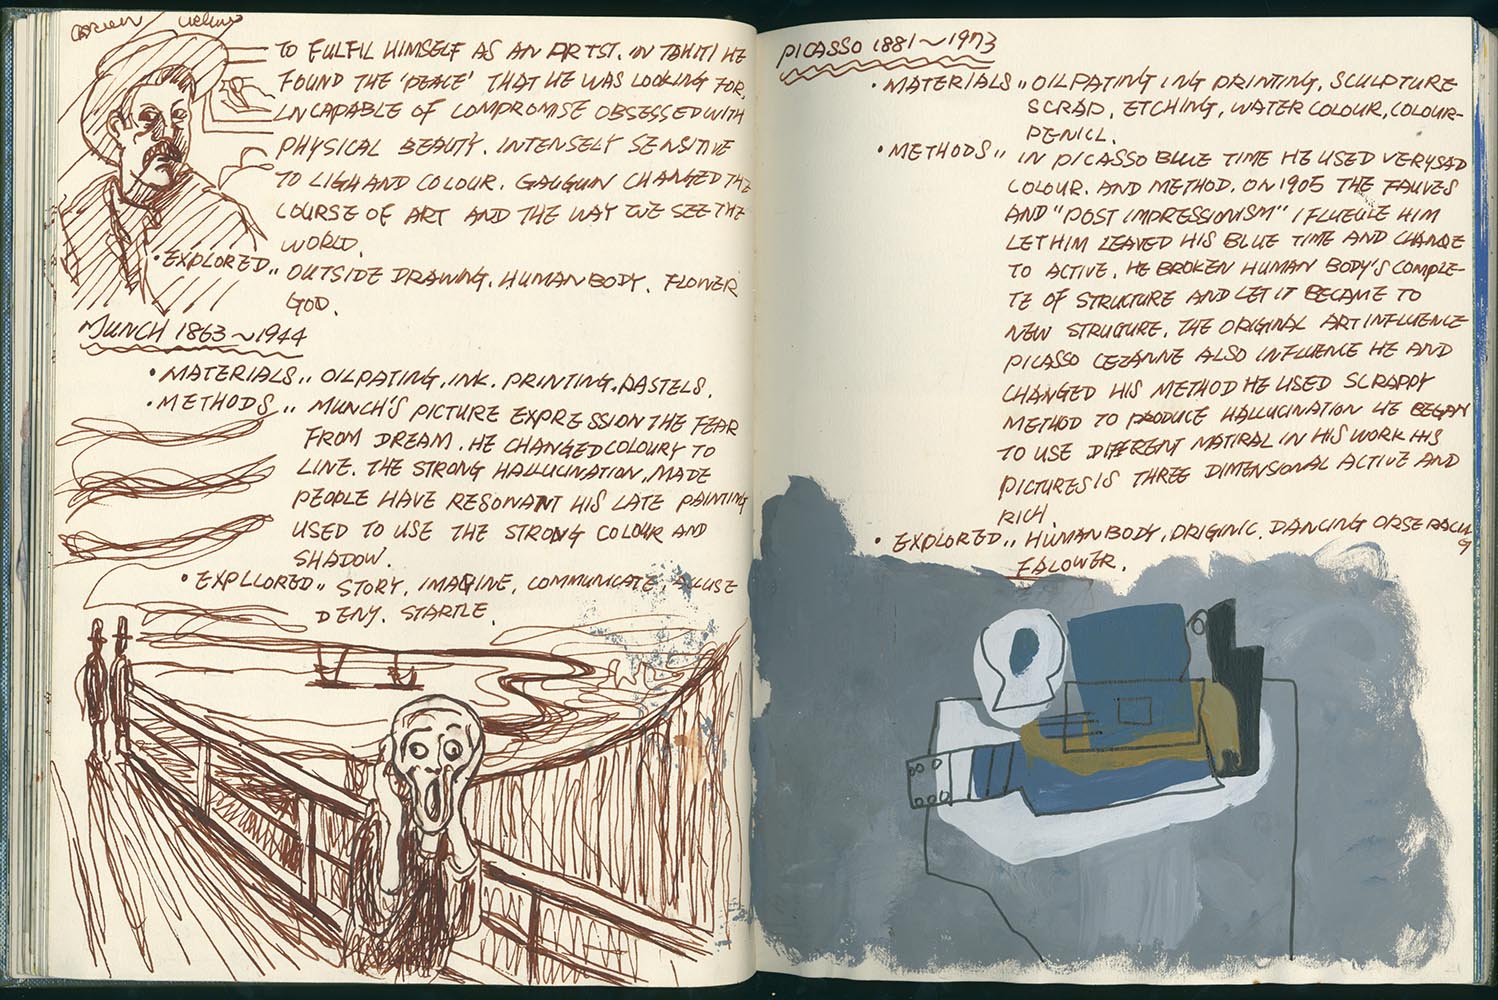 TO FULFIL HIMSELF AS AN ARTST. IN TAHITI HE
FOUND THE 'PEACE' THAT HE WAS LOOKING FOR.
INCAPABLE OF COMPROMISE OBSESSED WITH
PHYSICAL BEAUTY. INTENSELY SENSITIVE
TO LIGH AND COLOUR. GAUGUIN CHANGED THE
COURSE OF ART AND THE WAY WE SEE THE
WORLD.
• EXPLORED,, OUTSIDE DRAWNG. HUMAN BODY. FLOWER
GOD.
MUNCH 1863~1944
• MATERIALS,, OILPATING, INK. PRINTING, PASTELS.
• METHODS,, MUNCH'S PICTURE EXPRESSION THE FEAR
FROM DREAM. HE CHANGED COLOURY TO
LINE. THE STRONG HALLUCINATION, MADE
PEOPLE HAVE RESONANT HIS LATE PAINTING
USED TO USE THE STRONG COLOUR AND
SHADOW.
• EXPLLORED,, STORY, IMAGINE, COMMUNICATE, ACCUSE
DENY. STARTLE.
PICASSO 1881~1973
• MATERIALS,, OILPATING ING PRINTING, SCULPTURE
SCRAP, ETCHING, WATER COLOUR, COLOUR-
PENICL.
• METHODS,, IN PICASSO BLUE TIME HE USED VERY SAD
COLOUR. AND METHOD, ON 1905 THE FAUVES
AND "POST IMPRESSIONISM" IFLUEULE HIM
LET HIM LEAVED HIS BLUE TIME AND CHANGE
TO ACTIVE. HE BROKEN HUMAN BODY'S COMPLE-
TE OF STRUCTURE AND LET IT BECAME TO
NEW STRUCTURE. THE ORIGINAL ART INFLUENCE
PICASSO CEZANNE ALSO INFLUENCE HE AND
CHANGED HIS METHOD HE USED SCRAPPY
METHOD TO PRODUCE HALLUCINATION HE BEGAN
TO USE DIFFERENT MATIRAL IN HIS WORK HIS
PICTURES IS THREE DIMENSIONAL ACTIVE AND
RICH.
• EXPLORED,, HUMAN BODY, ORIGINIC. DANCING ORSE RACING
FALOWER.